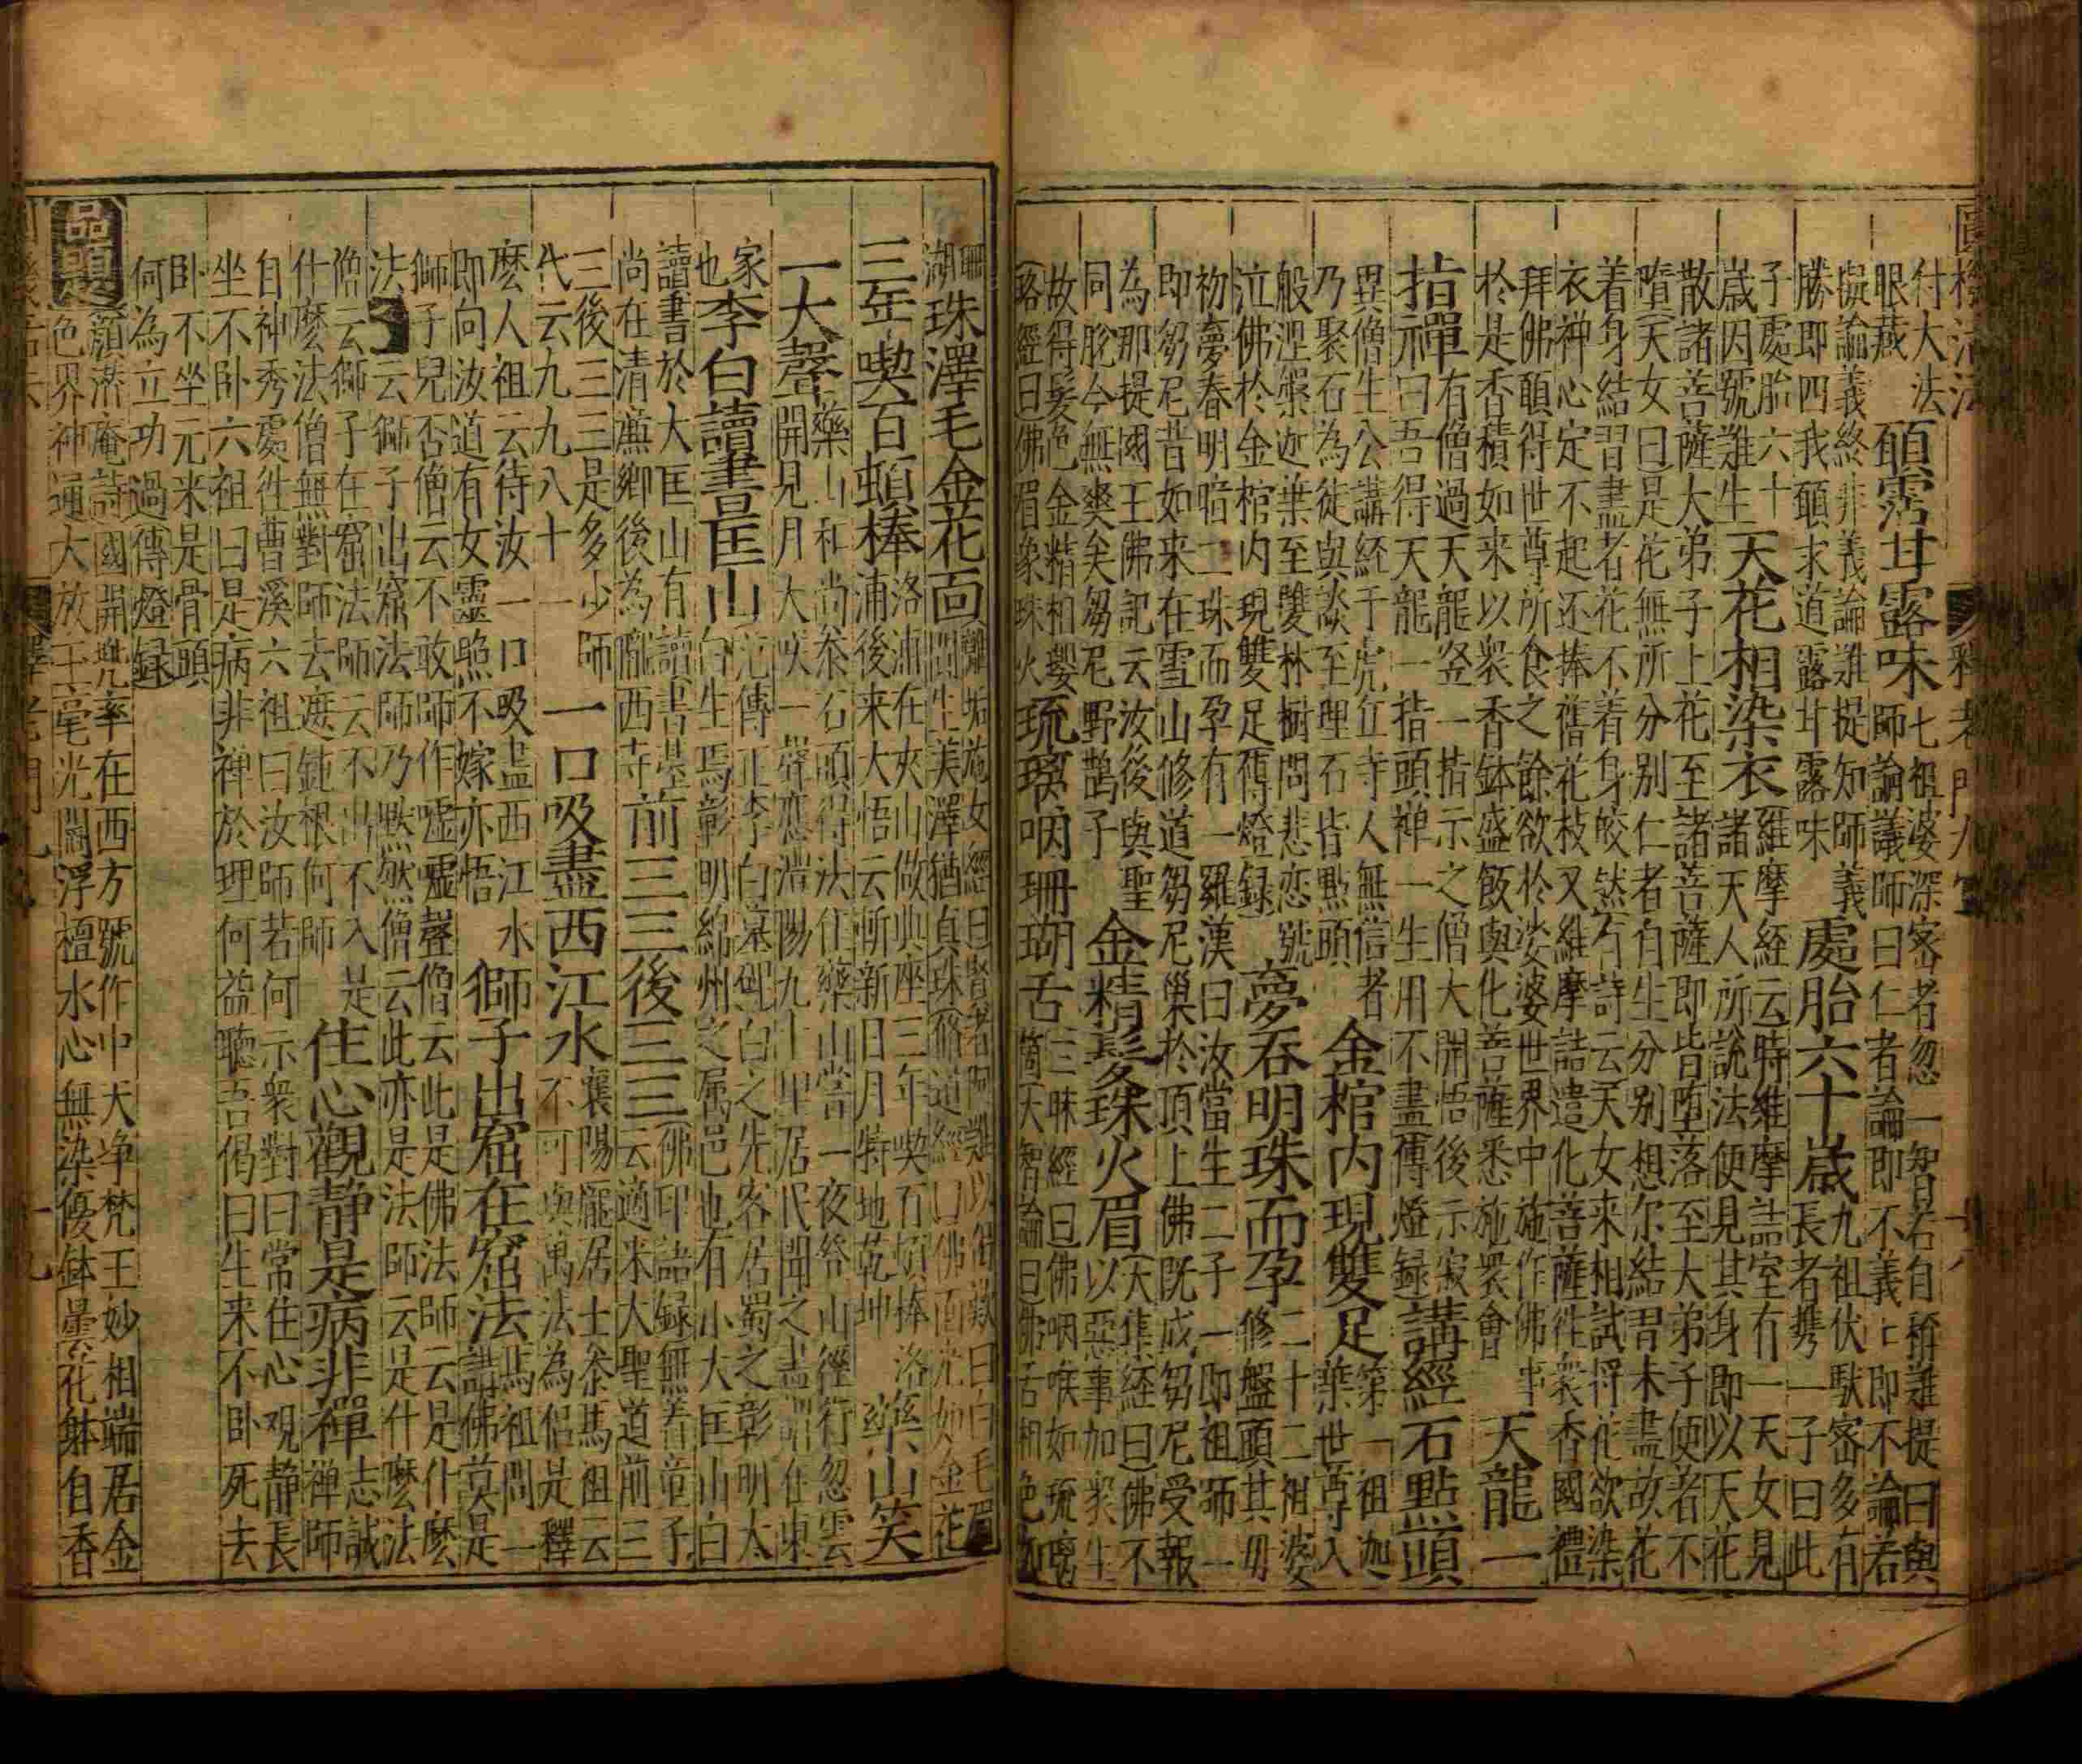 圓機活法 釋老門九 十八
付大法
眼蔵
願霑甘露味
七祖婆深密者忽一智石自稱難提曰與
師論議師曰仁者論即不義義即不論若
擬論義終非義論難提知師義
勝即四我願求道露甘露味
處胎六十歲
九祖伏馱密多有
長者携一子曰此
子處胎六十
歲因號難生
天花相染衣
維摩経云時維摩詰室有一天女見
諸天人所說法便見其身即以天花
散諸菩薩大弟子上花至諸菩薩即皆堕落至大弟子便著不
堕(天女曰是花無所分别仁者自生分别想尔結習未盡故花
着身結習盡者花不着身皎然有詩云天女来相試将花欲染
衣神心定不起还捧舊花枝又維摩詰遣化菩薩往衆香國禮
拜佛願得世尊所食之餘欲於娑婆世界中施作佛事
於是香積如来以衆香鉢盛飯與化菩薩悉施衆會
天龍一
指禪
有僧過天龍竖一指示之僧大開悟後示寂
曰吾得天龍一指頭禅一生用不盡傳燈録
講經石點頭
異僧生公講経于虎丘寺人無信者
乃聚石為徒與談至理石皆點頭
金棺内現雙足
第一祖迦
葉世尊入
般涅槃迦葉至雙林樹間悲恋號
泣佛於金棺内現雙足傳燈録
夢吞明珠而孕
二十二祖婆
修盤頭其母
初夢吞明暗二珠而孕有一羅漢曰汝當生二子一即祖師一
即芻尼昔如来在雪山修道芻尼巢於頂上佛既成芻尼受報
為那提國王佛記云汝後與聖
同胞今無爽矣芻尼野鵲子
金精髮珠火眉
(大集経曰佛不
以惡事加衆生
故得髮色金精相嬰
(珞經曰佛眉象珠火
琉璃咽珊瑚舌
三昧經曰佛咽喉如琉璃
筒(大智論曰佛舌相色如
珊
瑚
珠澤毛金花面
離垢施女經曰賢者阿難以偈歎曰白毛眉
間生美澤猶真珠修道經曰佛面光如金花
三年喫百頓棒
洛浦在夾山做典座三年喫百頓棒洛
浦後来大悟云斬新日月特地乾坤
藥山笑
一大聲
藥山和尚叅石頭得法住藥山嘗一夜登山徑行忽雲
開見月大笑一聲應澧陽九十里居民聞之盡謂在東
家
也
李白讀書匡山
范傳正李白墓碑白之先客居蜀之彰明太
白生焉彰明綿州之属邑也有小大匡山白
讀書於大匡山有讀書臺
尚在清廉鄉後為隴西寺
前三三後三三
(佛印語録無着童子
云適来大聖道前三
三後三三是多少師
代云九九八十一
一口吸盡西江水
襄陽龐居士叅馬祖云
不可與萬法為侣是什
麽人祖云待汝一口吸盡西江水
即向汝道有女靈照不嫁亦悟
獅子出窟在窟法
馬祖問一
講佛莫是
獅子兒否僧云不敢師作嘘嘘聲僧云此是佛法師云是什麽
法云獅子出窟法師乃默然僧云此亦是法師云是什麽法
僧云獅子在窟法師云不出不入是
什麽法僧無對師去遮鈍根何師
住心觀静是病非禪
志誠
禅師
自神秀處往曹溪六祖曰汝師若何示衆對曰常住心观静長
坐不卧六祖曰是病非禅於理何益聽吾偈曰生来不卧死去
卧不坐元来是骨頭
何為立功過傳燈録
品題
國開兠率在西方號作中天净梵王妙相端居金
色界神通大放玉毫光閻浮檀水心無染優鉢曇花躰自香